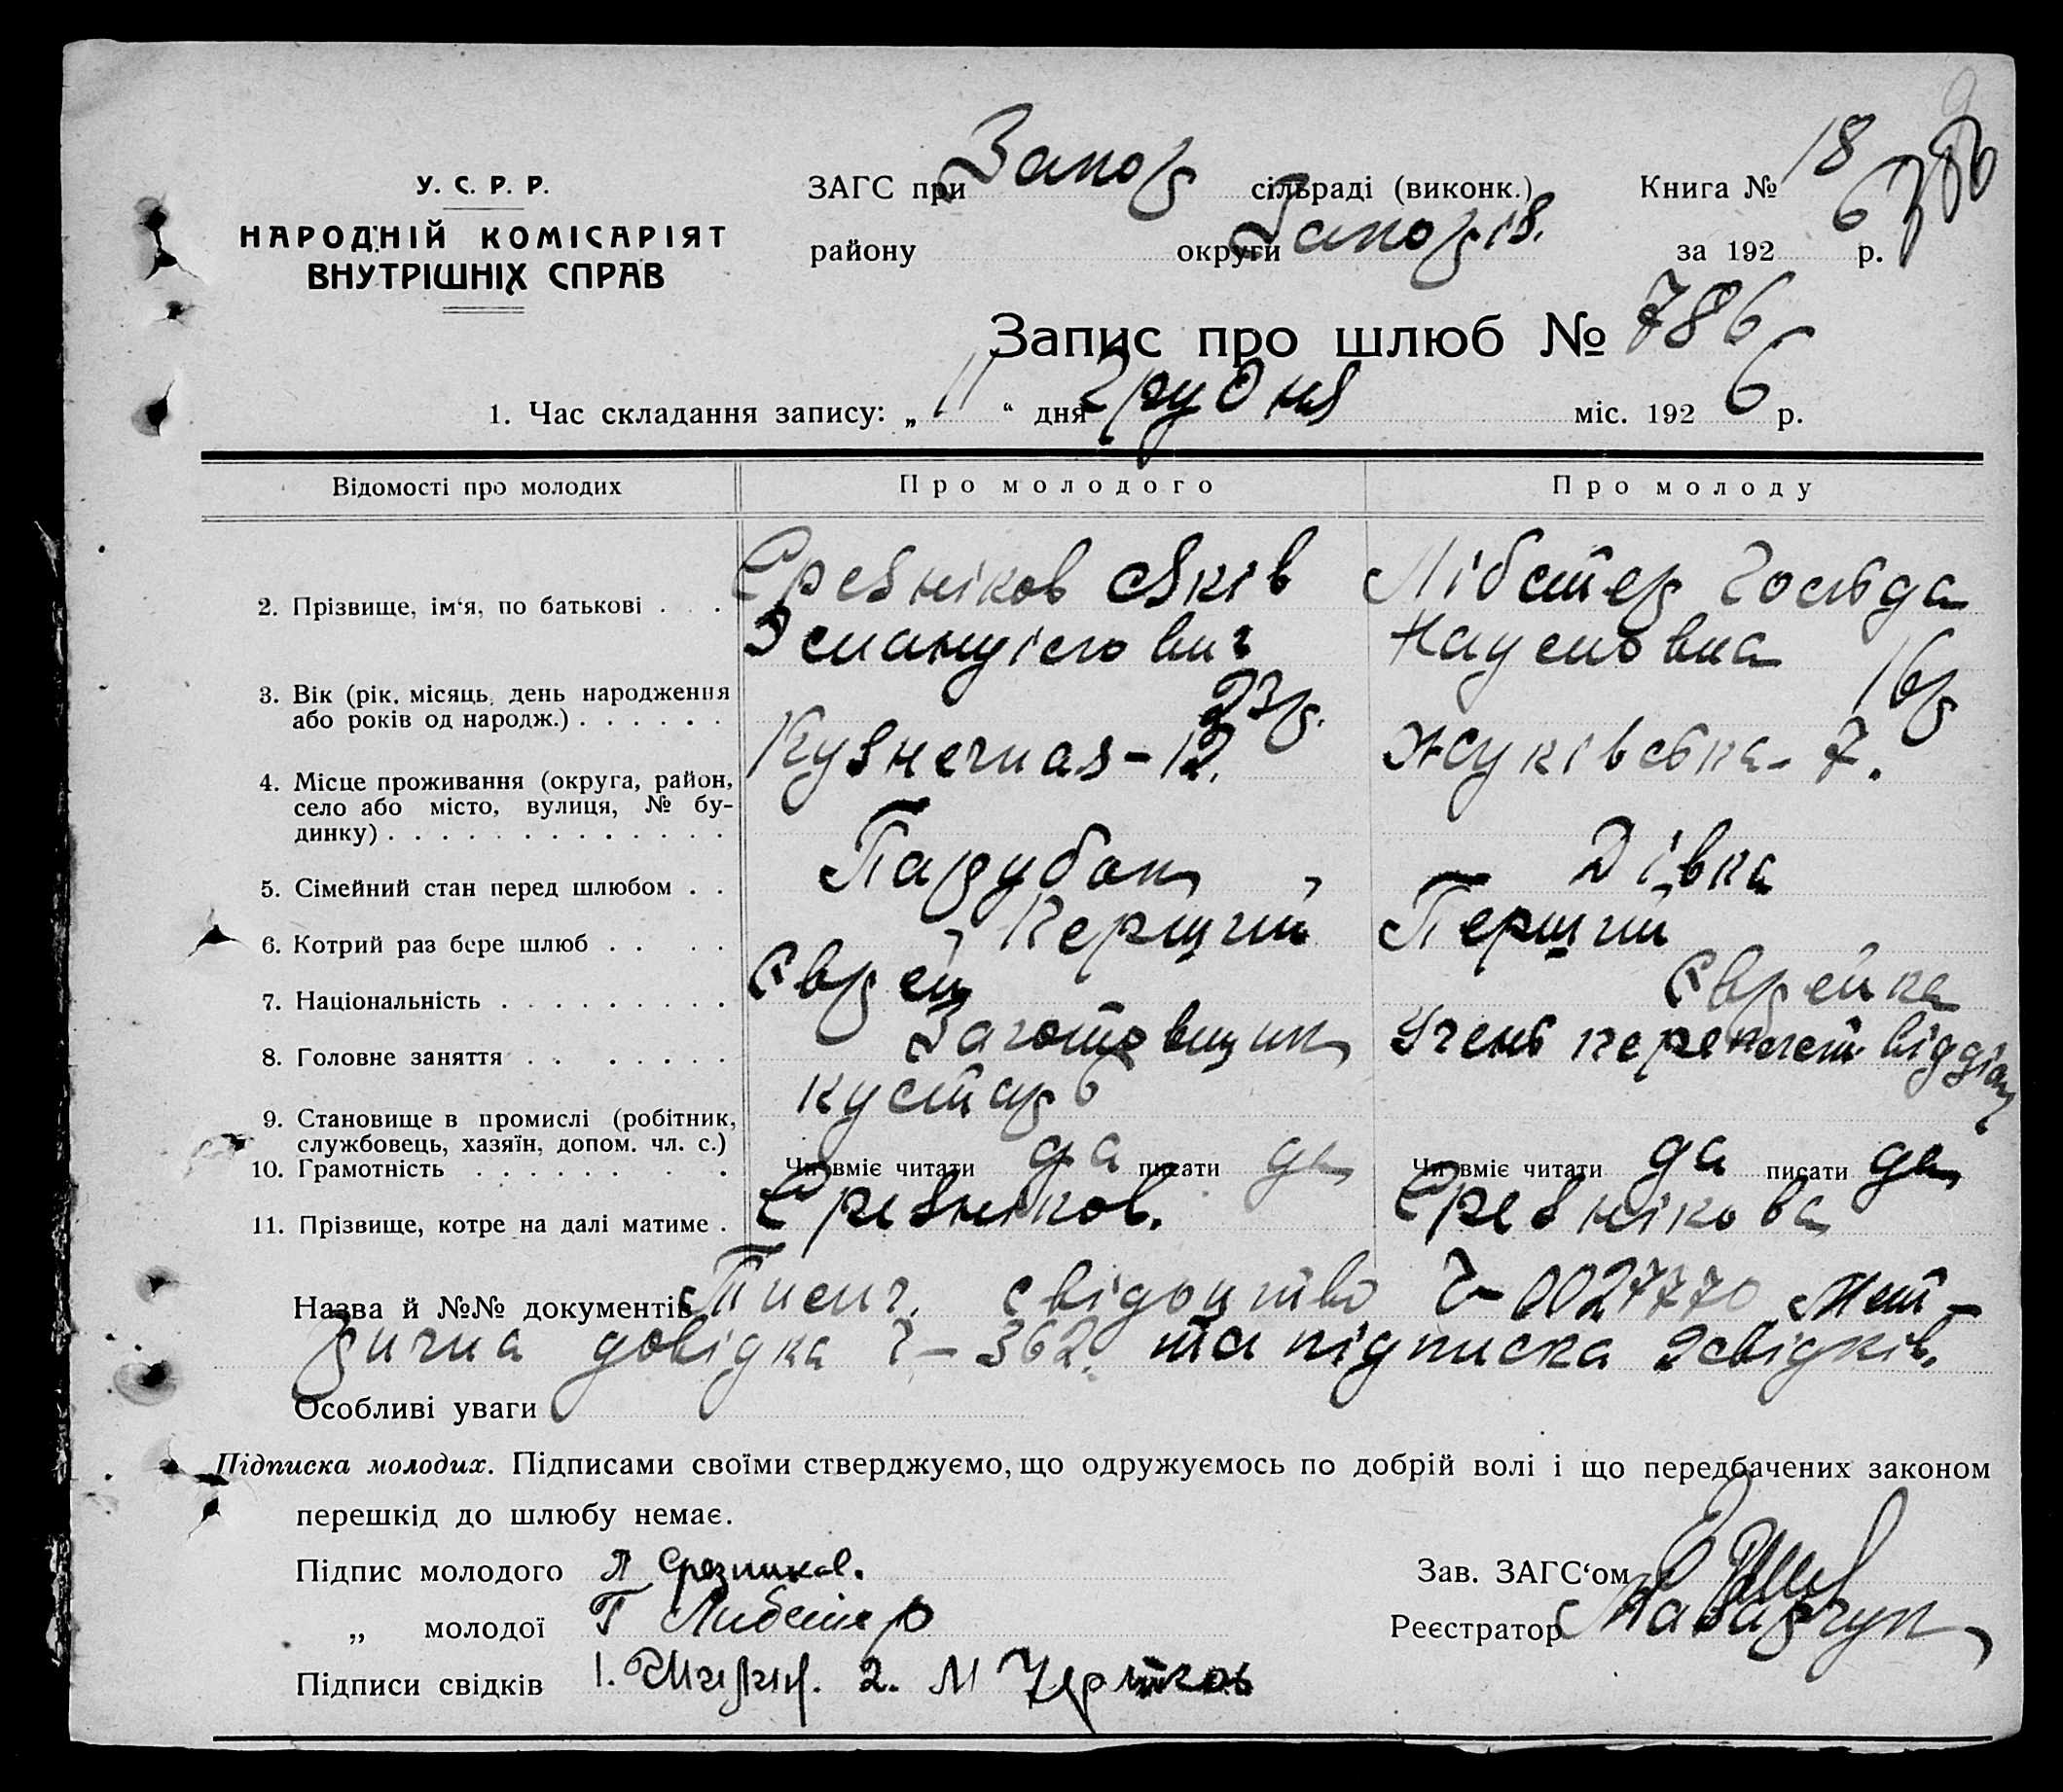 У. С. Р. Р.
НАРОДНІЙ КОМІСАРІЯТ
ВНУТРІШНІХ СПРАВ
ЗАГС при Запор сільраді (виконк.) Книга № 18
району округи Запоріз. за 192 6 р.
386
Запис про шлюб № 786
1. Час складання запису: „ 11 “ дня Грудня міс. 192 6 р.
Відомості про молодих Про молодого Про молоду
2. Прізвище, ім‘я, по батькові . . . Срезніков Яків Лібстер Гольда
Эмануілович Наумовна
3. Вік (рік, місяць, день народження
або років од народж.) . . . . . . 23 р. 16 р
4. Місце проживання (округа, район,
село або місто, вулиця, № бу-
динку) . . . . . . . . . . . . . Кузнечная - 12. Жуківська - 7.
5. Сімейний стан перед шлюбом . . Парубок Дівка
6. Котрий раз бере шлюб . . . . Перший Перший
7. Національність . . . . . . . . . Єврей Єврейка
8. Головне заняття . . . . . . . Заготовщик Учень переплет. відділу
9. Становище в промислі (робітник,
службовець, хазяїн, допом. чл. с.) кустарь
10. Грамотність . . . . . . . . Чи вміє читати да писати да Чи вміє читати да писати да
11. Прізвище, котре на далі матиме . Срезніков. Срезнікова
Назва й №№ документів свідоцтво Ч-0027770 Мет-
рична довідка Ч-362. та підписка 2 свідків.
Особливі уваги
Підписка молодих. Підписами своїми стверджуємо, що одружуємось по добрій волі і що передбачених законом
перешкід до шлюбу немає.
Підпис молодого Я Срезников.
„ молодої Г Либстер
Підписи свідків 1. 2. М
Зав. ЗАГС‘ом
Реєстратор